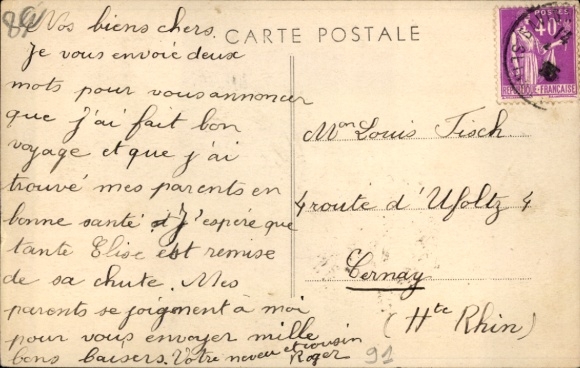 89
Nos biens chers.
Je vous envoie deux
mots pour vous annoncer
que j'ai fait bon
voyage et que j'ai
trouvé mes parents en
bonne santé et J'espere que
tante Elise est remise
de sa chute. Mes
parents se joignent à moi
pour vous envoyer mille
bons baisers. Votre neveu et cousin
Roger
CARTE POSTALE
POSTES
40c
REPUBLIQUE FRANÇAISE
Mon Louis Fisch
4 route d'Ufoltz 4
Cernay
(Hte Rhin)
91